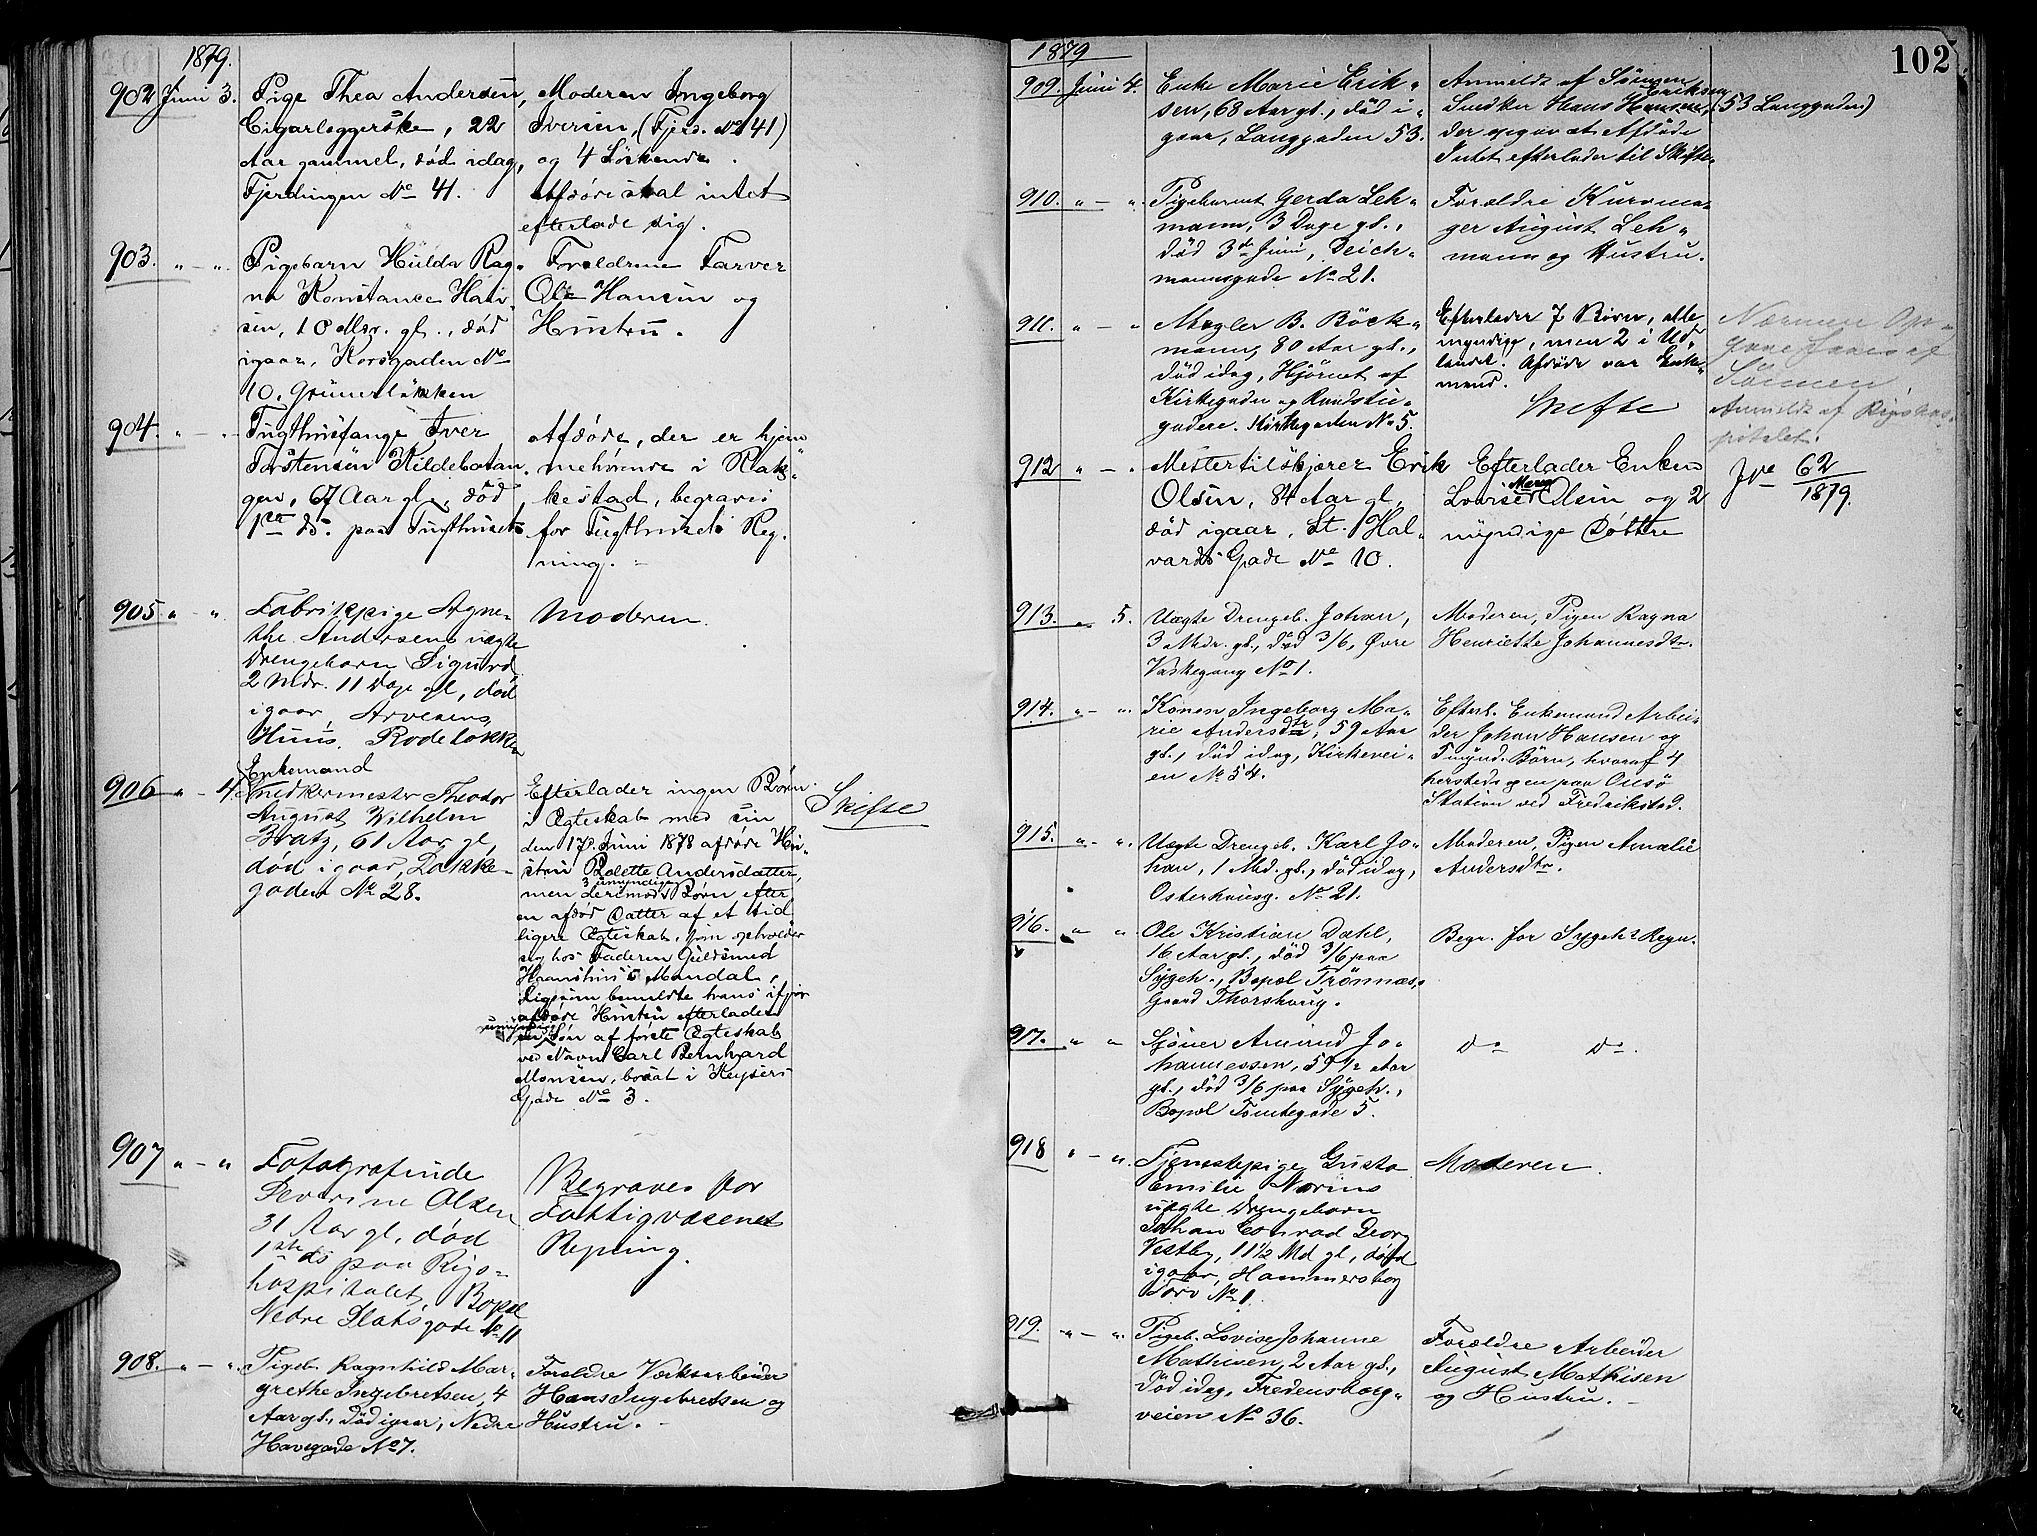 1879.
902 Juni 3. Pige Thea Andersen,
Cigarleggerske, 22
Aar gammel, død idag,
Fjerdingen No 41.
Moderen Ingeborg
Iversen, (Fjerd. No 41)
og 4 Søskende.
Afdøde skal intet
efterlade sig.
903. " - " Pigebarn Hulda Rag-
na Konstance Han-
sen, 10 Mdr. gl., død
igaar, Korsgaden No
10. Grünerløkken
Forældrene Farver
Ole Hansen og
Hustru.
904. " - " Tugthusfange Iver
Torstensen Kildebotan
gen, 67 Aar gl., død
1ste ds. paa Tugthuset
Afdøde, der er hjem
mehørende i Rak-
kestad, begraves
for Tugthusets Reg-
ning.
905 " - " Fabrikpige Agne-
the Andersens uægte
Drengebarn Sigurd
2 Mdr. 11 Dage gl, død
igaar, Arvesens
Huus. Rodeløkken
Moderen.
906 " - 4. Enkemand
Snedkermester Theodor
August Wilhelm
Bratz, 61 Aar gl,
død igaar, Lakke-
gaden No 28.
Efterlader ingen Børn
i Ægteskab med sin
den 17 Juni 1878 afdøde Hu-
stru Bolette Andersdatter,
men derimod 3 umyndige Børn efter
en afdød Datter af et tid
ligere Ægteskab, som opholder
sig hos Faderen Guldsmed
i Mandal,
Ligesom bemeldte hans ifjor
afdøde Hustru efterlader
umyndige
en Søn af første Ægteskab
ved Navn Carl Bernhard
Monsen, bosat i Keysers
Gade No 3.
Skifte
907 " - " Fotografinde
Severine Olsen
31 Aar gl, død
1ste ds paa Rigs-
hospitalet, Bopæl
Nedre Slotsgade No 11
Begraves for
Fattigvæsenets
Regning.
908. " - " Pigeb. Ragnhild Mar-
grethe Ingebretsen, 4
Aar gl., død igaar, Nedre
Havegade No 7.
Forældre Værksarbeider
Hans Ingebretsen og
Hustru.
1879
102
909. Juni 4. Enke Marie Erik-
sen, 68 Aar gl., død i-
gaar, Langgaden 53.
Anmeldt af Sønnen
Snedker Hans Hansen Eriksen (53 Langgaden)
der opgav at Afdøde
Intet efterlader til Skifte.
910. " - " Pigebarnet Gerda Leh-
mann, 3 Dage gl.,
død 3die Juni, Deich-
mannsgade No 21.
Forældre Kurvma-
ger August Leh-
mann og Hustru.
911. " - " Mægler B. Böck-
mann, 80 Aar gl.,
død idag, Hjørnet af
Kirkegaden og Raadstu-
gaden. Kirkegaden No 5.
Efterlader 7 Børn, alle
myndige, men 2 i Ud-
landet. Afdøde var Enke-
mand.
Skifte
Nærmere Op-
gave faaes af
Sønnen
Anmeldt af Rigshos-
pitalet.
912 " - " Mestertilskjærer Erik
Olsen, 84 Aar gl,
død igaar, St. Hal-
vards Gade No 10.
Efterlader Enken
Lovise Marie Olsen og 2
myndige Døttre
62
1879.
913. " 5. Uægte Drengeb. Johan,
3 Mdr. gl., død 3/6, Øvre
Vaskegang No 1.
Moderen, Pigen Ragna
Henriette Johannesdtr.
914. " - " Konen Ingeborg Ma-
rie Andersdtr, 59 Aar
gl., død idag, Kirkevei-
en No 54.
Efterl. Enkemand Arbei-
der Johan Hansen og
5 mynd. Børn, hvoraf 4
hersteds og en paa Onsø
Station ved Fredrikstad.
915. " - " Uægte Drengeb. Karl Jo-
han, 1 Md. gl., død idag,
Osterhausg. No 21.
Moderen, Pigen Amalie
Andersdtr.
916. " " Ole Kristian Dahl,
16 Aar gl., død 3/6 paa
Sygeh., Bopæl Trönnæs
Gaard Thorshaug.
Begr. for Sygeh. Regn.
917. " " Sjöuer Amund Jo-
hannessen, 59 1/2 Aar
gl., død 3/6 paa Sygeh.,
Bopæl Tomtegade 5.
do do.
918 " - " Tjenestepige Gusta
Emilie Norins
uægte Drengebarn
Johan Conrad Georg
Vestby, 11 1/2 Md gl, død
igaar, Hammersborg
Torv No 1.
Moderen.
919. " - " Pigeb. Lovise Johanne
Mathisen, 2 Aar gl.,
død idag, Fredensborg-
veien No 36.
Forældre Arbeider
August Mathisen
og Hustru.